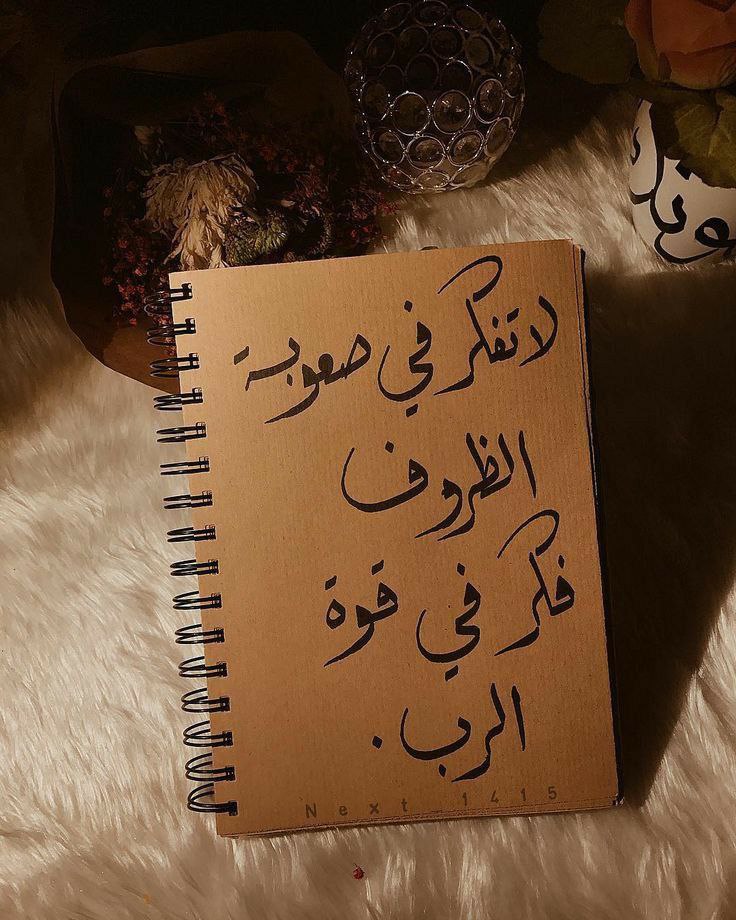 لا تفكر في صعوبة
الظروف
فكر في قوة
الرب.
Next_1415